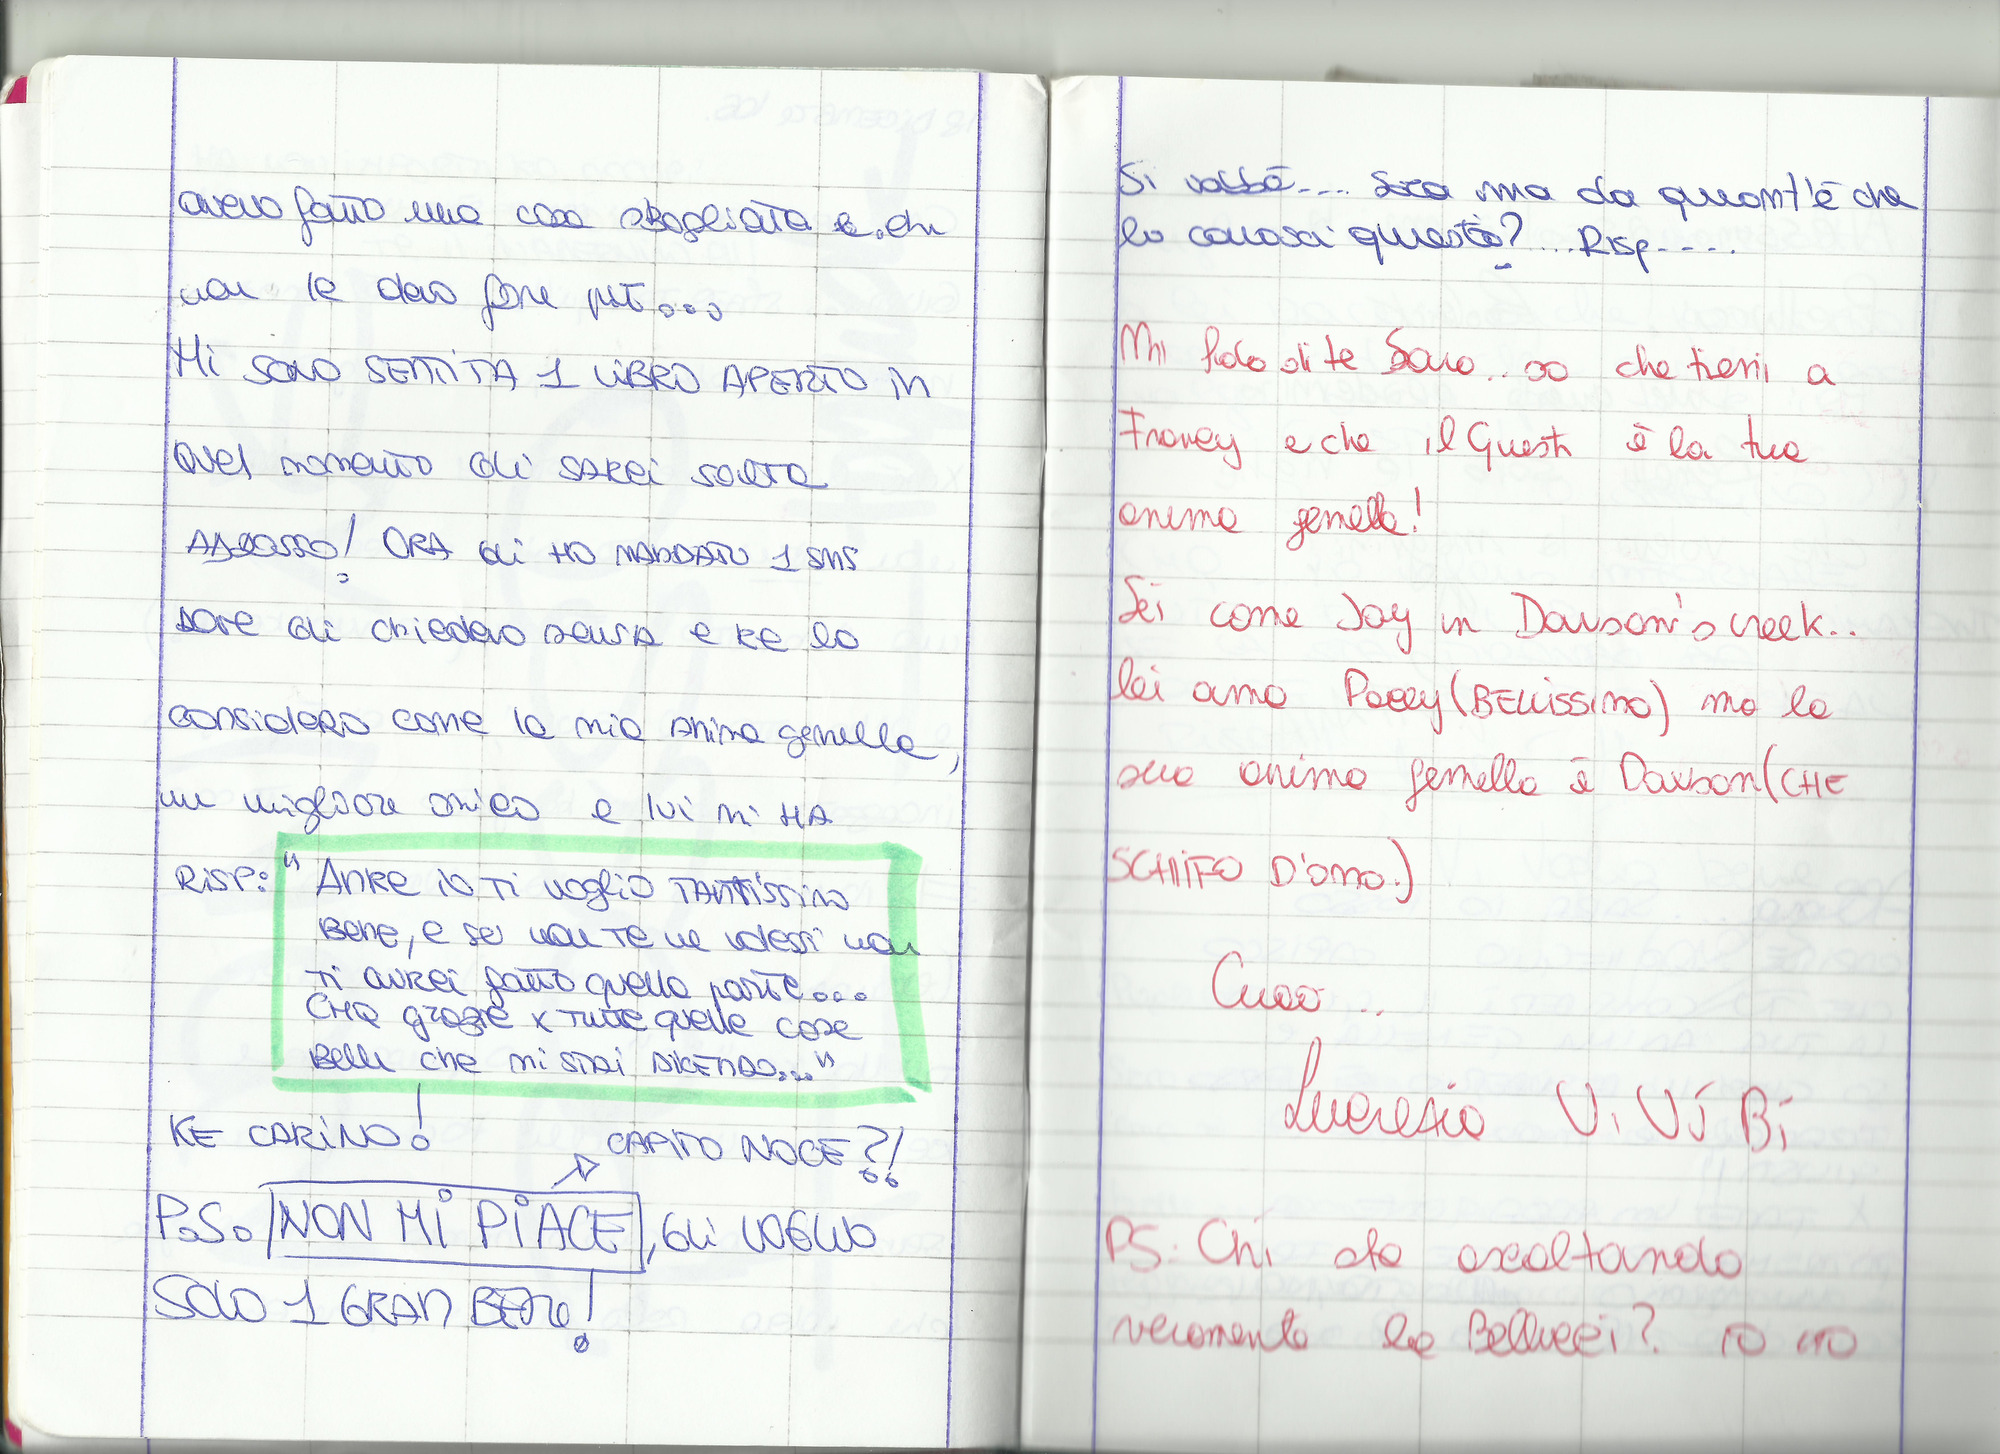 avevo fatto una cosa sbagliata e che
non le devo fare più...
Mi SONO SENTITA 1 LIBRO APERTO in
quel momento gli SAREI SALTATA
ADDOSSO! ORA gli HO MANDATO 1 SMS
DOVE gli chiedevo scusa e ke lo
considero come la mia anima gemella,
un migliore amico e lui mi HA
RISP: "ANKE io Ti voglio TANTissimo
Bene, e se non Te ne volessi non
Ti avrei fatto quella parte...
CMQ grazie x tutte quelle cose
Belle che mi stai dicendo..."
KE CARINO!
CAPITO NOCE?!
P.S. NON Mi PiACE, Gli VOGLIO
SOLO 1 GRAN BENE!
Si vabbè.... Sara ma da quant'è che
lo conosci questo?...Risp.....
Mi fido di te Sara... so che tieni a
Francy e che il Guasti è la tua
anima gemella!
Sei come Joy in Dawson's creek..
lei ama Pacey (BELLISSIMO) ma la
sua anima gemella è Dawson (CHE
SCHIFO D'OMO.)
Ciao..
Lucrezia Vi VJ Bi
PS: Chi sta ascoltando
veramente la Bellucci? IO NO